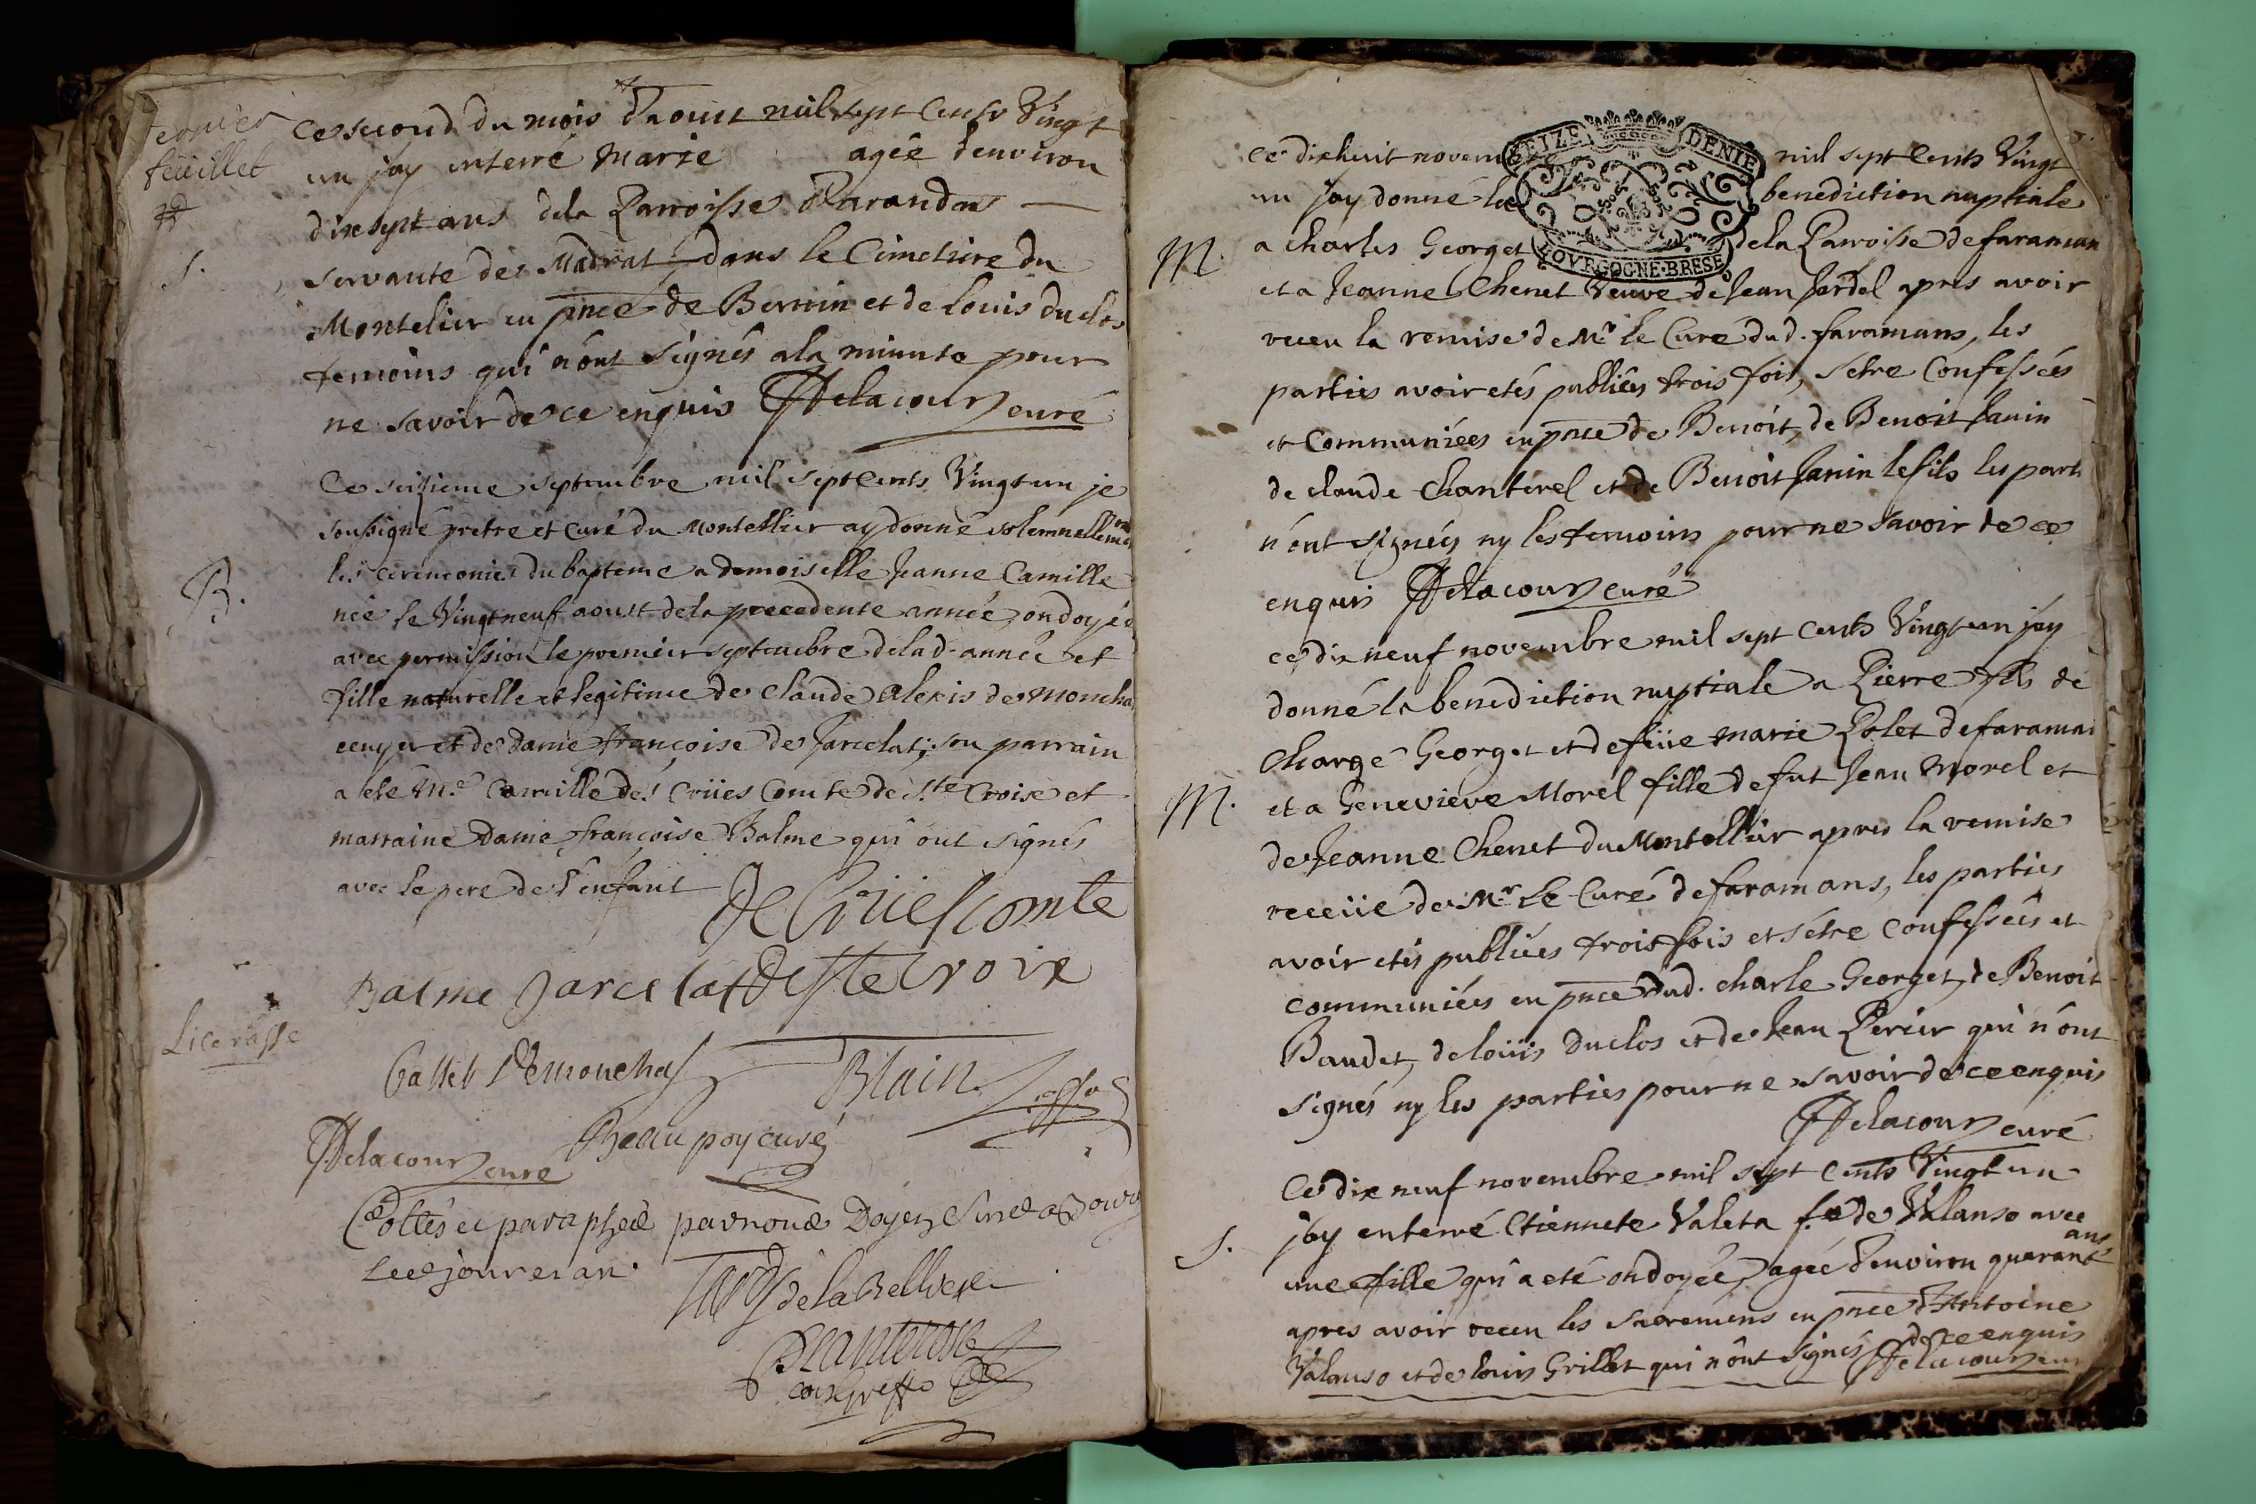 feuillet
ce second du mois d'aoust mil sept cents Vingt
un j'ay enterré Marie agée d'environ
dixsept ans dela Parroisse d'arandas
S.
servante de Madrat dans le Cimetiere du
Montelier en pnce de Bertin et de Louis duclos
temoins qui n'ont signés a la minute pour
ne savoir de ce enquis Delacour curé
Ce seizieme septembre mil sept cents Vingt un je
soussigné pretre et curé du Montellier ay donné solemnellement
B.
les ceremonies du bapteme a demoiselle Jeanne Camille
née le Vingt neuf aoust dela precedente année, ondoyée
avec permission le premier septembre delad. année et
fille naturelle et legitime de Claude Alexis de Moncha
ecuyer et de dame françoise de Jarcelat; son parrain
a eté Mre Camille des Criies Comte de Ste Croix et
marraine Dame françoise Balme qui ont signés
avec le pere de l'enfant De Criies comte
Balme Jarcelat De Ste Croix
Gallet Demonchas Blain
Beaupoy curé
Delacour curé
Cottés et paraphée par nous Doyen
les jour et an
de la Belliere
ce dixhuit novembre mil sept Cents Vingt
SEIZE DENIE
BOVRGOGNE·BRESE
un j'ay donné la benediction nuptiale
M.
a charles Georget dela Parroisse de faraman
et a Jeanne Chenet Veuve de Jean Jardel apres avoir
receu la remise de Mr le Curé dud. faramans, les
parties avoir etés publiées trois fois, s'etre Confessées
et Communiées en pnce de Benoit, de Benoit Janin
de claude Chanterel et de Benoit Janin le fils les parti
n'ont signées ny les temoins pour ne savoir de ce
enquis Delacour curé
ce dix neuf novembre mil sept Cents Vingt un j'ay
donné la benediction nuptiale a Pierre fils de
Charge Georget et de feüe Marie Polet de faraman
M.
et a Genevieve Morel fille de fut Jean Morel et
de Jeanne Chenet du Montellier apres la remise
receüe de Mr Le Curé de faramans, les parties
avoir etés publiées trois fois et s'étre confessées et
communiées en pnce dud. charle Georget, de Benoit
Baudet, de loüis Duclos et de Jean Perier qui n'ont
signés ny les parties pour ne savoir de ce enquis
Delacour curé
Ce dix neuf novembre mil sept Cents Vingt un
S.
j'ay enterré Etiennete Valeta fe de Valanso avec
une fille qui a eté ondoyée, agée d'environ quarante ans
apres avoir receu les sacremens en pnce d'Antoine
Valanso et de louis Grillet qui n'ont signés de ce enquis
Delacour curé